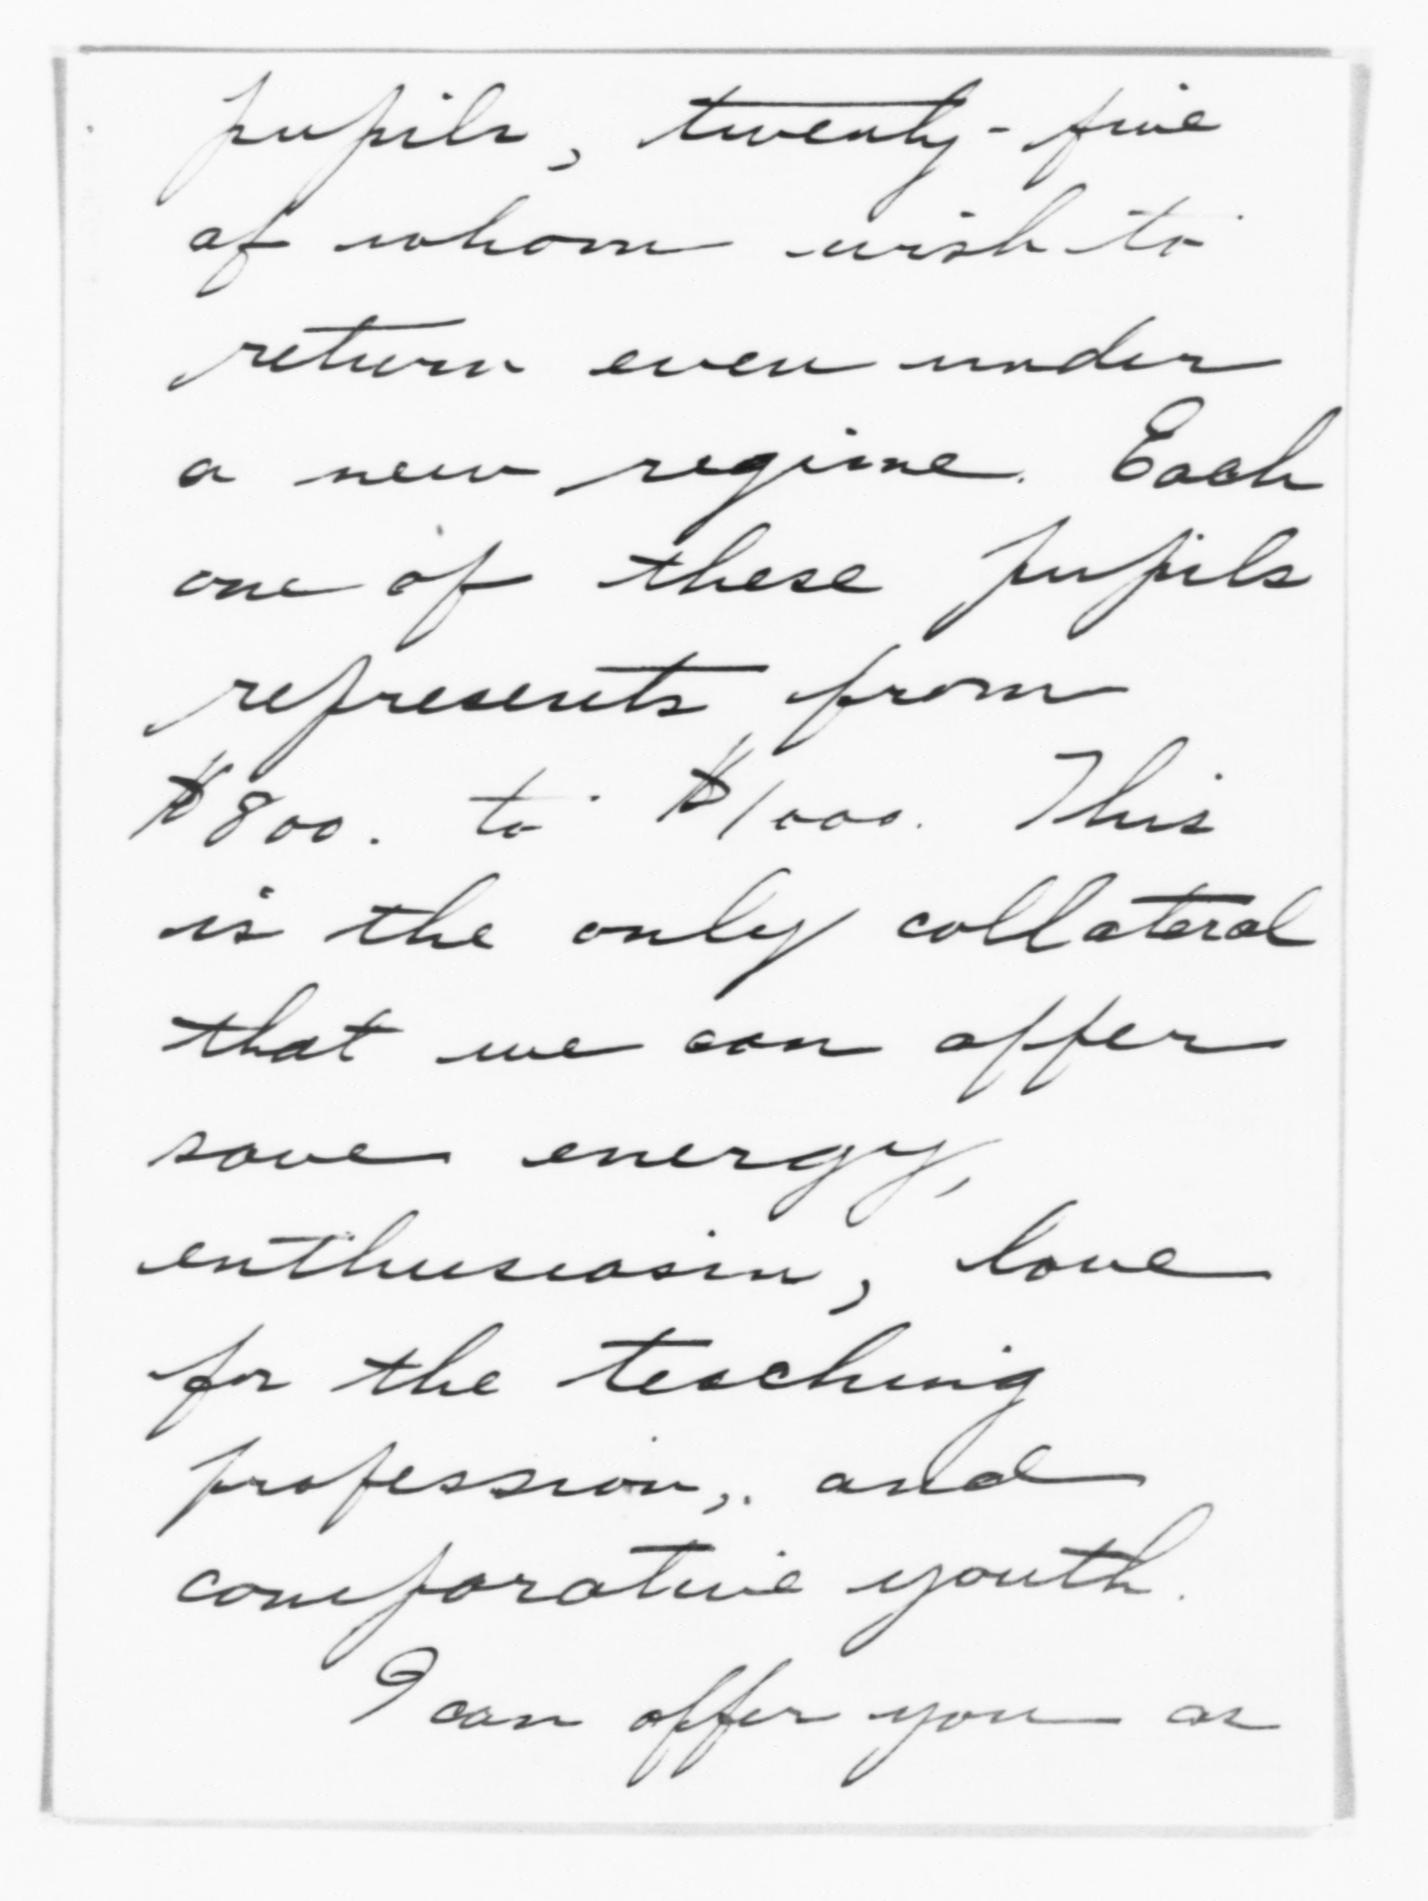 pupils, twenty-five
of whom wish to
return even under
a new regime. Each
one of these pupils
represents from
$800. to $1000. This
is the only collateral
that we can offer
save energy,
enthusiasm, love
for the teaching
profession, and
comparative youth.
I can offer you as